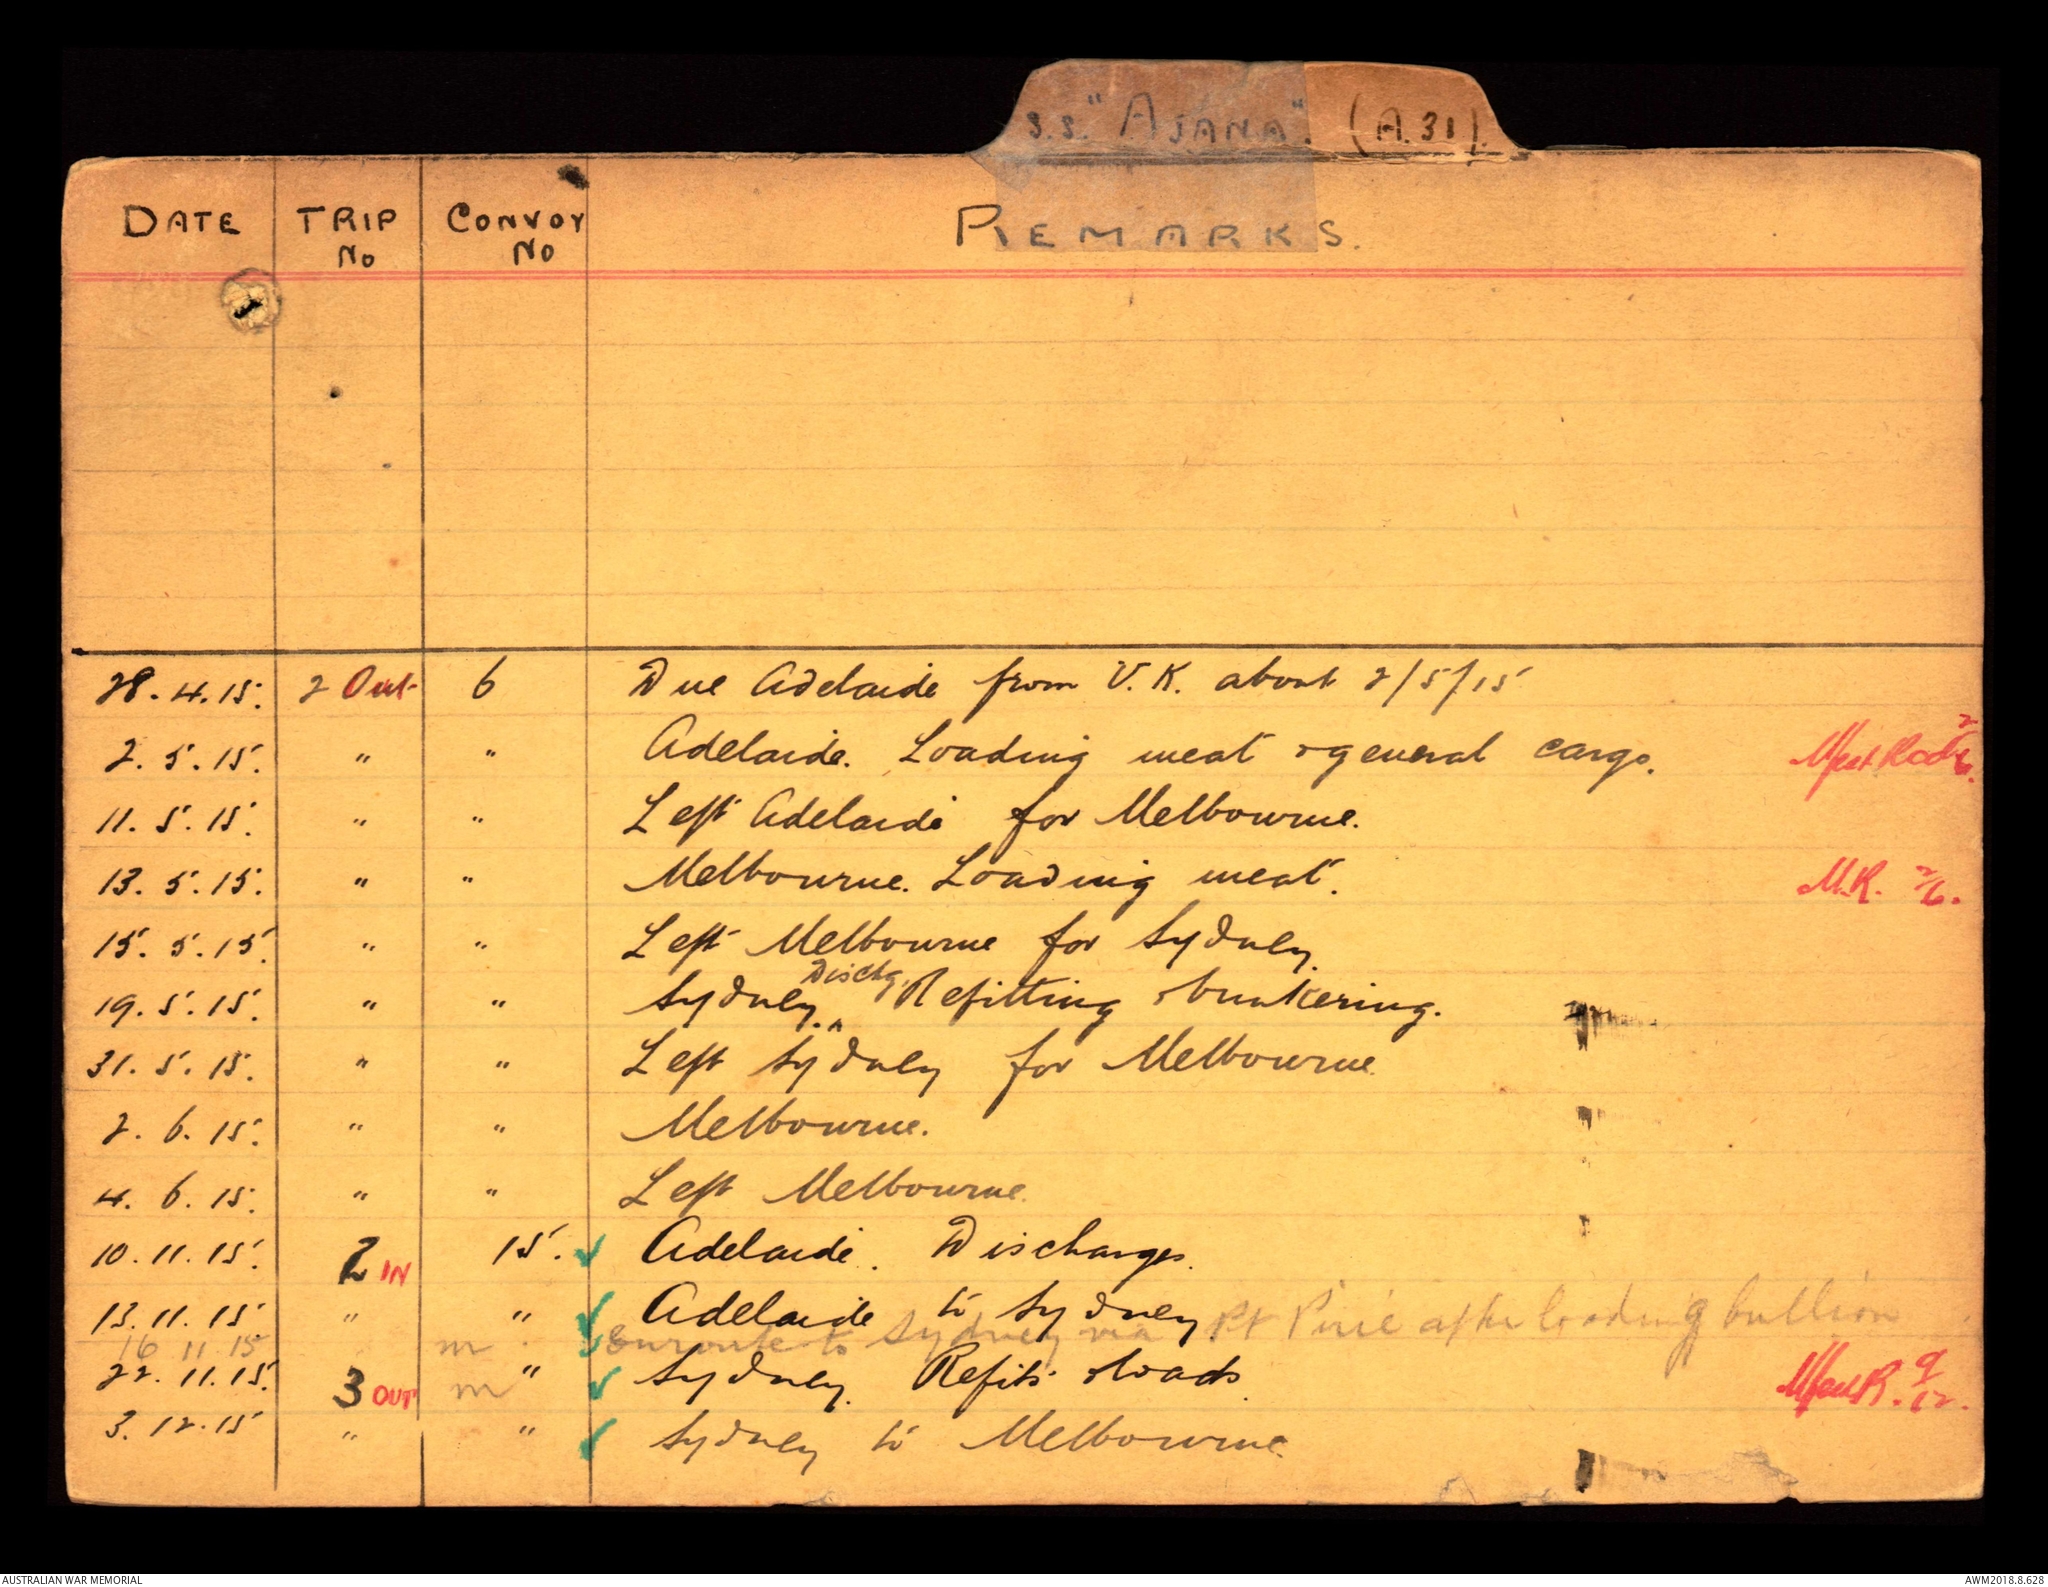 S.S. "AJANA". (A.31).
DATE TRIP No CONVOY No REMARKS.
28.4.15. 2 Out 6 Due Adelaide from U.K. about 2/5/15
2.5.15. " " Adelaide. Loading meat & general cargo. 2/6.
11.5.15. " " Left Adelaide for Melbourne.
13.5.15. " " Melbourne. Loading meat. M.R. 2/6.
15.5.15. " " Left Melbourne for Sydney.
19.5.15. " " Sydney. Dischg. Refitting & bunkering.
31.5.15. " " Left Sydney for Melbourne.
2.6.15. " " Melbourne.
4.6.15. " " Left Melbourne.
10.11.15. 2 IN 15. ✓ Adelaide. Discharges.
13.11.15 " " ✓ Adelaide to Sydney
16 11 15 m ✓ Enroute to Sydney via Pt Pirie after loading bullion
22.11.15. 3 OUT m " ✓ Sydney. Refits & loads. 9/12.
3.12.15 " " ✓ Sydney to Melbourne.
AUSTRALIAN WAR MEMORIAL AWM2018.8.628